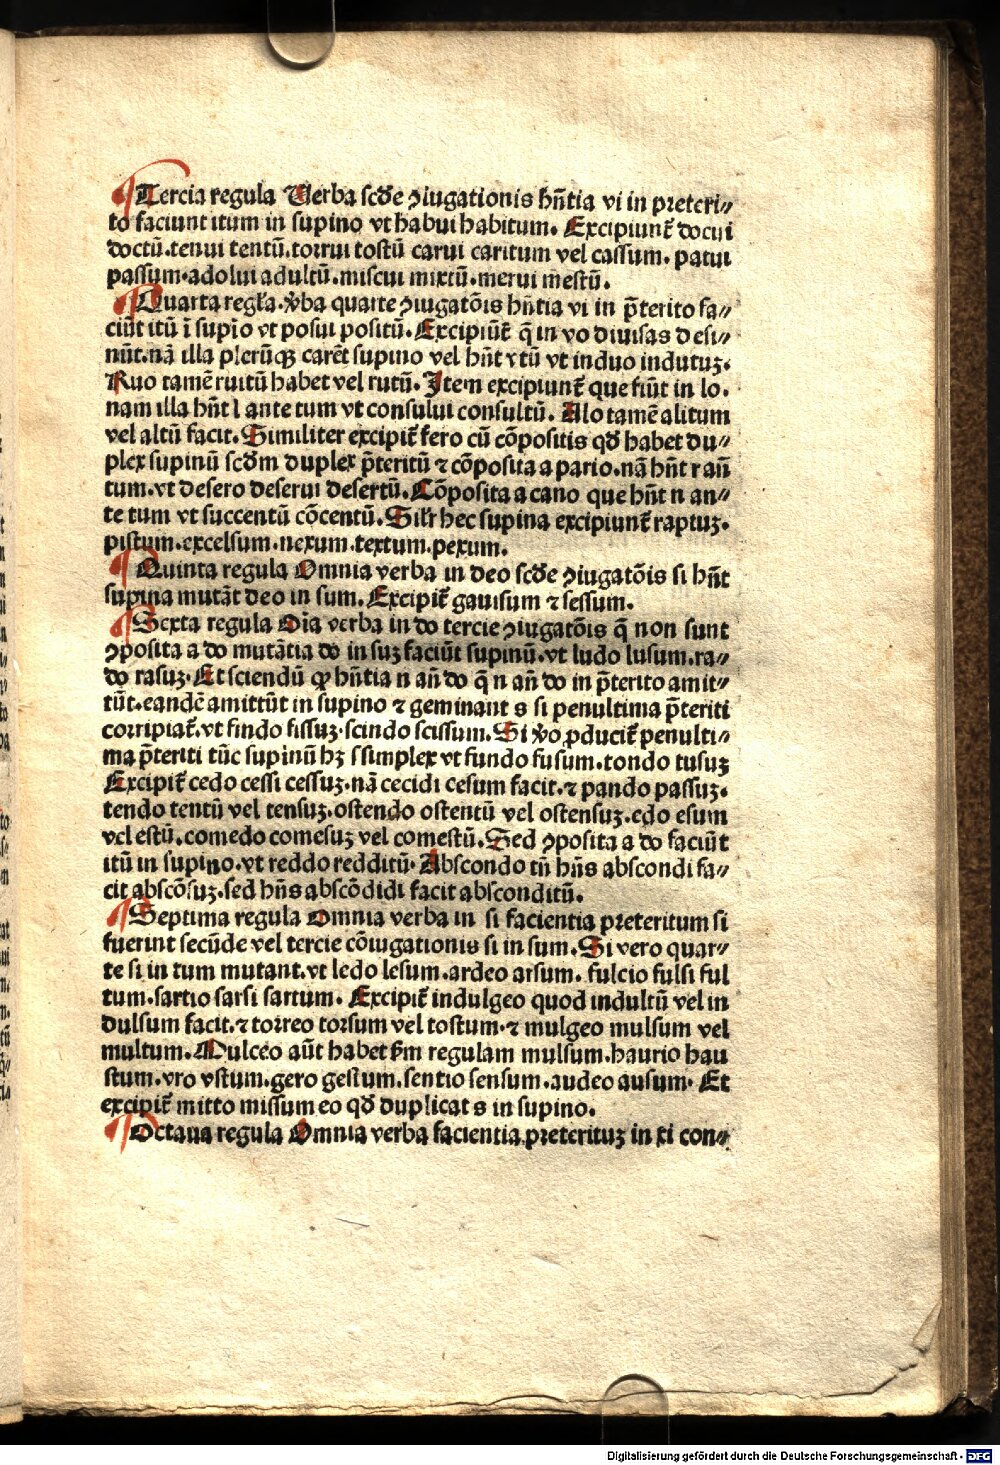 ¶Tercia regula Verba scd̄e ꝯiugationis hn̄tia vi in preteri⸗
to faciunt itum in supino vt habui habitum. Excipiunt̄ docui
doctū.tenui tentū.torrui tostū carui caritum vel cassum. patui
passum.adolui adultū.miscui mixtū.merui mestū.
¶Quarta regl̄a.v̄ba quarte ꝯiugatōis hn̄tia vi in p̄terito fa⸗
ciūt itū ī supīo vt posui positū.Excipiūt̄ q̄ in vo diuisas desi⸗
nūt.nā illa plerūqꝫ carēt supino vel hn̄t vtū vt induo indutuꝫ.
Ruo tamē ruitū habet vel rutū. Item excipiunt̄ que fiūt in lo.
nam illa hn̄t l ante tum vt consului consultū. Alo tamē alitum
vel altū facit.Similiter excipit̄ fero cū cōpositis qd̄ habet du⸗
plex supinū scd̄m duplex p̄teritū ⁊ cōposita a pario.nā hn̄t r an̄
tum.vt desero deserui desertū.Cōposita a cano que hn̄t n an⸗
te tum vt succentū cōcentū.Sil̄r hec supina excipiunt̄ raptuꝫ.
pistum.excelsum.nexum.textum.pexum.
¶Quinta regula Omnia verba in deo scd̄e ꝯiugatōis si hn̄t
supina mutāt deo in sum.Excipit̄ gauisum ⁊ sessum.
¶Sexta regula Oīa verba in do tercie ꝯiugatōis q̄ non sunt
ꝯposita a do mutātia do in suꝫ faciūt supinū.vt ludo lusum.ra⸗
do rasuꝫ.Et sciendū ꝙ hn̄tia n an̄ do q̄ n an̄ do in p̄terito amit⸗
tūt.eandē amittūt in supino ⁊ geminant s si penultima p̄teriti
corripiat̄.vt findo fissuꝫ.scindo scissum.Si v̄o ꝓducit̄ penulti⸗
ma p̄teriti tūc supinū hꝫ s simplex vt fundo fusum.tondo tusuꝫ
Excipit̄ cedo cessi cessuꝫ.nā cecidi cesum facit.⁊ pando passuꝫ.
tendo tentū vel tensuꝫ.ostendo ostentū vel ostensuꝫ.edo esum
vel estū.comedo comesuꝫ vel comestū.Sed ꝯposita a do faciūt
itū in supino.vt reddo redditū.Abscondo tn̄ hn̄s abscondi fa⸗
cit abscōsuꝫ.sed hn̄s abscōdidi facit absconditū.
¶Septima regula Omnia verba in si facientia preteritum si
fuerint secūde vel tercie cōiugationis si in sum.Si vero quar⸗
te si in tum mutant.vt ledo lesum.ardeo arsum. fulcio fulsi ful
tum.sartio sarsi sartum. Excipit̄ indulgeo quod indultū vel in
dulsum facit.⁊ torreo torsum vel tostum.⁊ mulgeo mulsum vel
multum.Mulceo aūt habet km̄ regulam mulsum.haurio hau
stum.vro vstum.gero gestum.sentio sensum.audeo ausum. Et
excipit̄ mitto missum eo qd̄ duplicat s in supino.
¶Octaua regula Omnia verba facientia preterituꝫ in xi con⸗
Digitalisierung gefördert durch die Deutsche Forschungsgemeinschaft - DFG